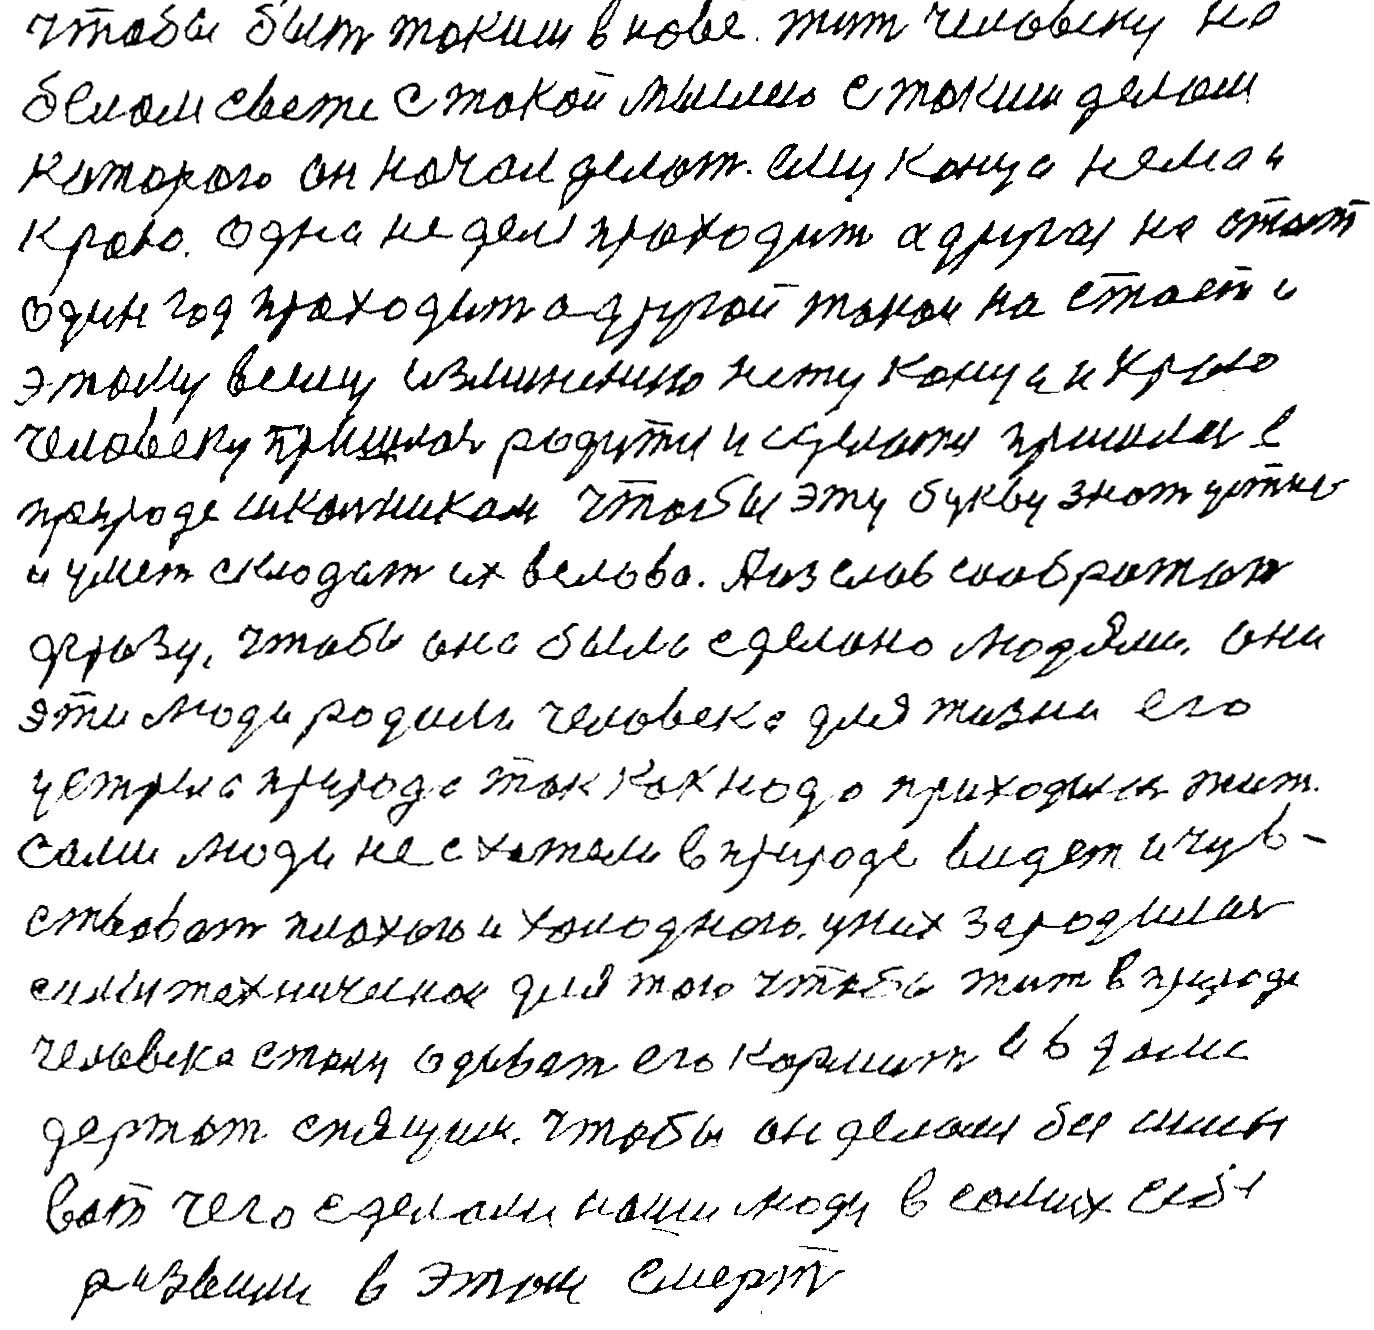 чтобы быт таким в нове. жит человеку на
белом свете с такой мыслю с таким делом
которого он начал делат. ему конца нема и
краю. одна неделя проходит а другая на стает
один год проходит а другой такои на стает и
этому вещу изминению нету конца и краю
человеку пришлос родитя и сделатя пришлос в
природе школникам чтобы эту букву знат устно
и умет складат их вслова. Аиз слов саабражат
фразу, чтобы она была сделано людями. они
эти люди родили человека для жизни его
устрела природа так как надо приходился жит.
сами люди не схатели в природе видет и чув-
ствоват плохого и холодного. уних зародилас
сили техническое для того чтобы жит в природе
человека стали одеват его кормит и в доме
держат спящим. чтобы он делался без силы
вот чего сделали наши люди в самих себе
развили в этом смерт